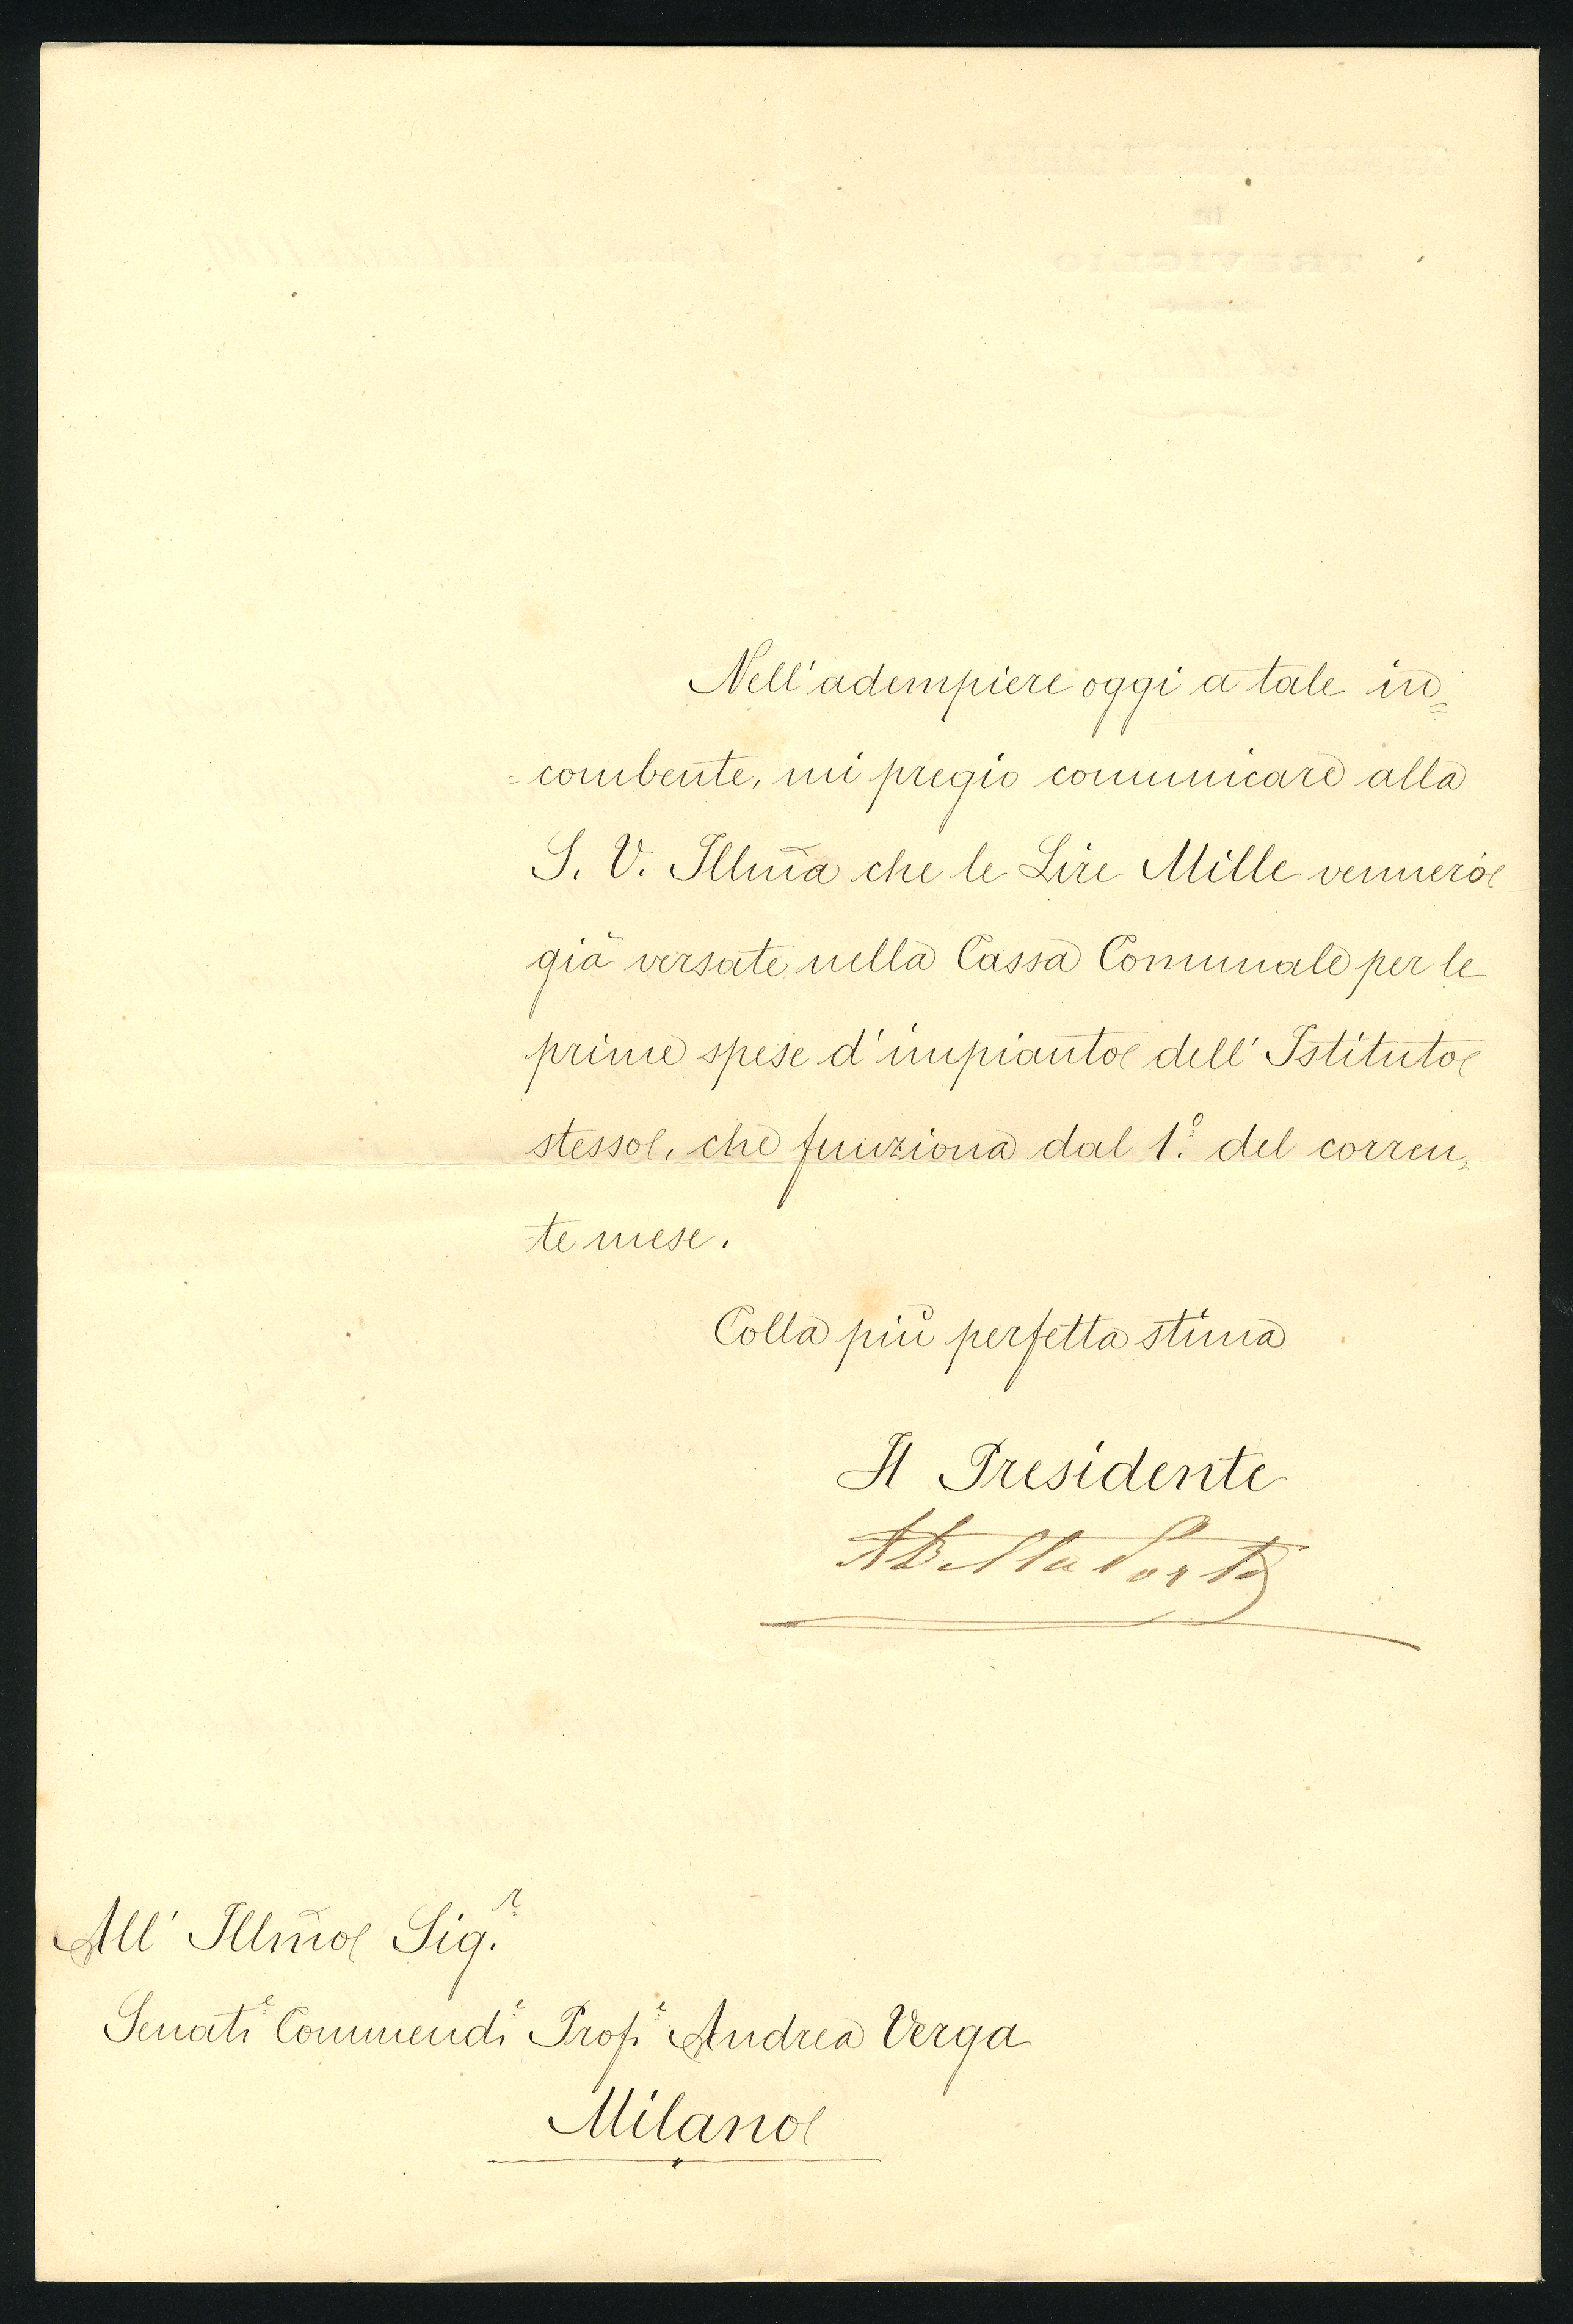 Nell'adempiere oggi a tale in=
=combente, mi pregio comunicare alla
S. V. Illm̃a che le Lire Mille vennero
già versate nella Cassa Comunale per le
prime spese d'impianto dell'Istituto
stesso, che funziona dal 1.º del corren=
te mese.
Colla più perfetta stima
Il Presidente
All' Illm̃o Sig.r
Senat.e Commend.e Prof.e Andrea Verga
Milano